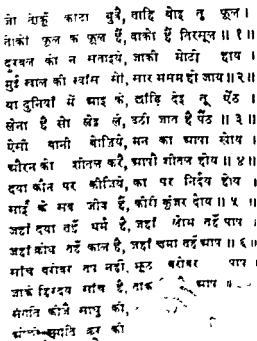 जो तोकूँ काटा बुवै, ताहि बोइ तू फूल।
तोको फूल क फूल हैं, वाको हैं तिरसूल॥१॥
दुरबल को न सताइये, जाकी मोटी हाय।
मुई खाल की स्वाँस सों, सार भसम हो जाय॥२॥
या दुनियाँ में आइ के, छाँड़ि देइ तू ऐंठ।
लेना है सो लेइ ले, उठी जात है पैंठ॥३॥
ऐसी बानी बोलिये, मन का आपा खोय।
औरन को शीतल करै, आपौ शीतल होय॥४॥
दया कौन पर कीजिये, का पर निर्दय होय।
साईं के सब जीव हैं, कीरी कुंजर दोय॥५॥
जहाँ दया तहँ धर्म है, जहाँ लोभ तहँ पाप।
जहाँ क्रोध तहँ काल है, जहाँ छमा तहँ आप॥६॥
साँच बरोबर तप नहीं, झूठ बरोबर पाप।
जाके हिरदय साँच है, ताके है आप॥
संगति कीजै साधु की,
संगति कूर की